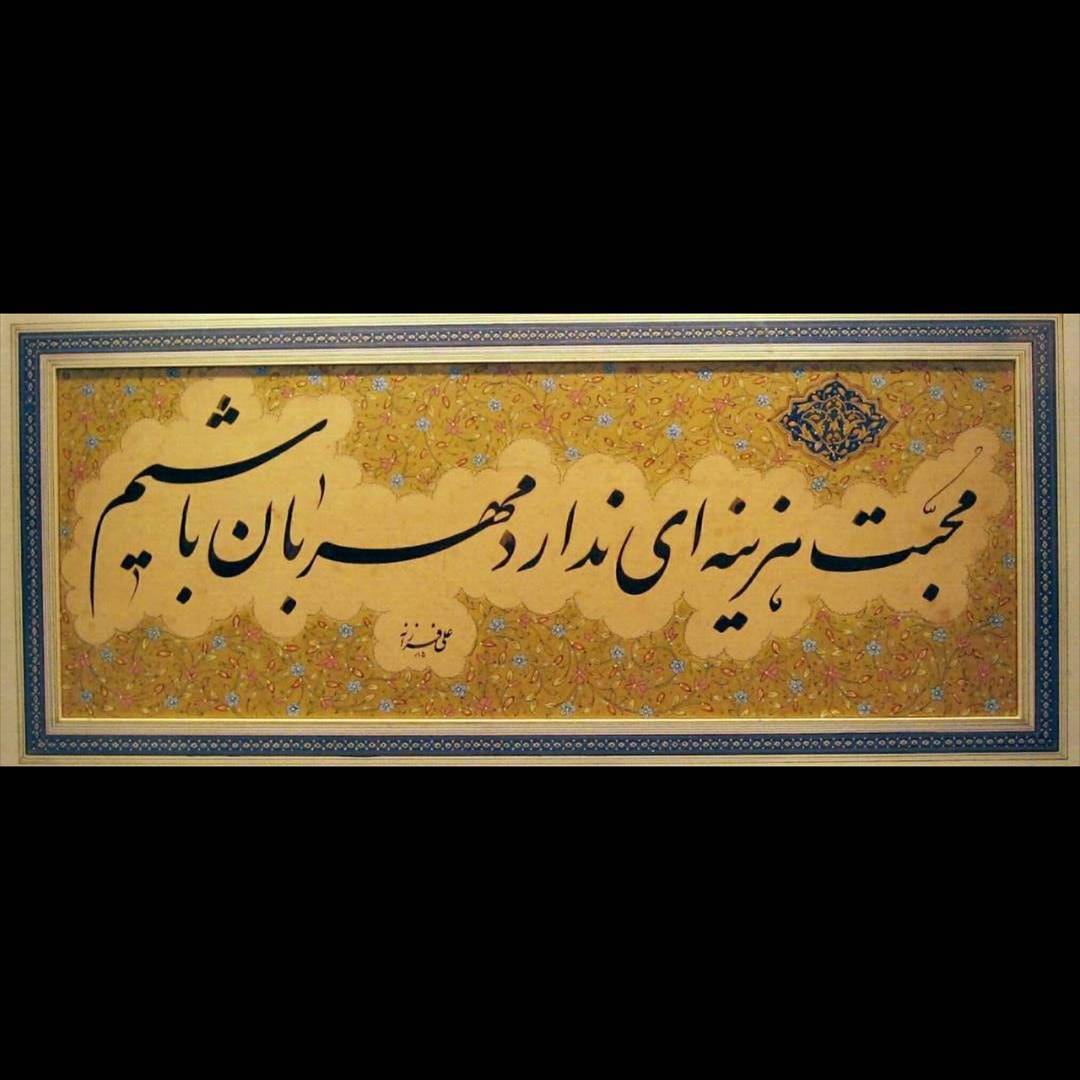 محبّت هزینه‌ای ندارد مهربان باشیم
علی فرزانه